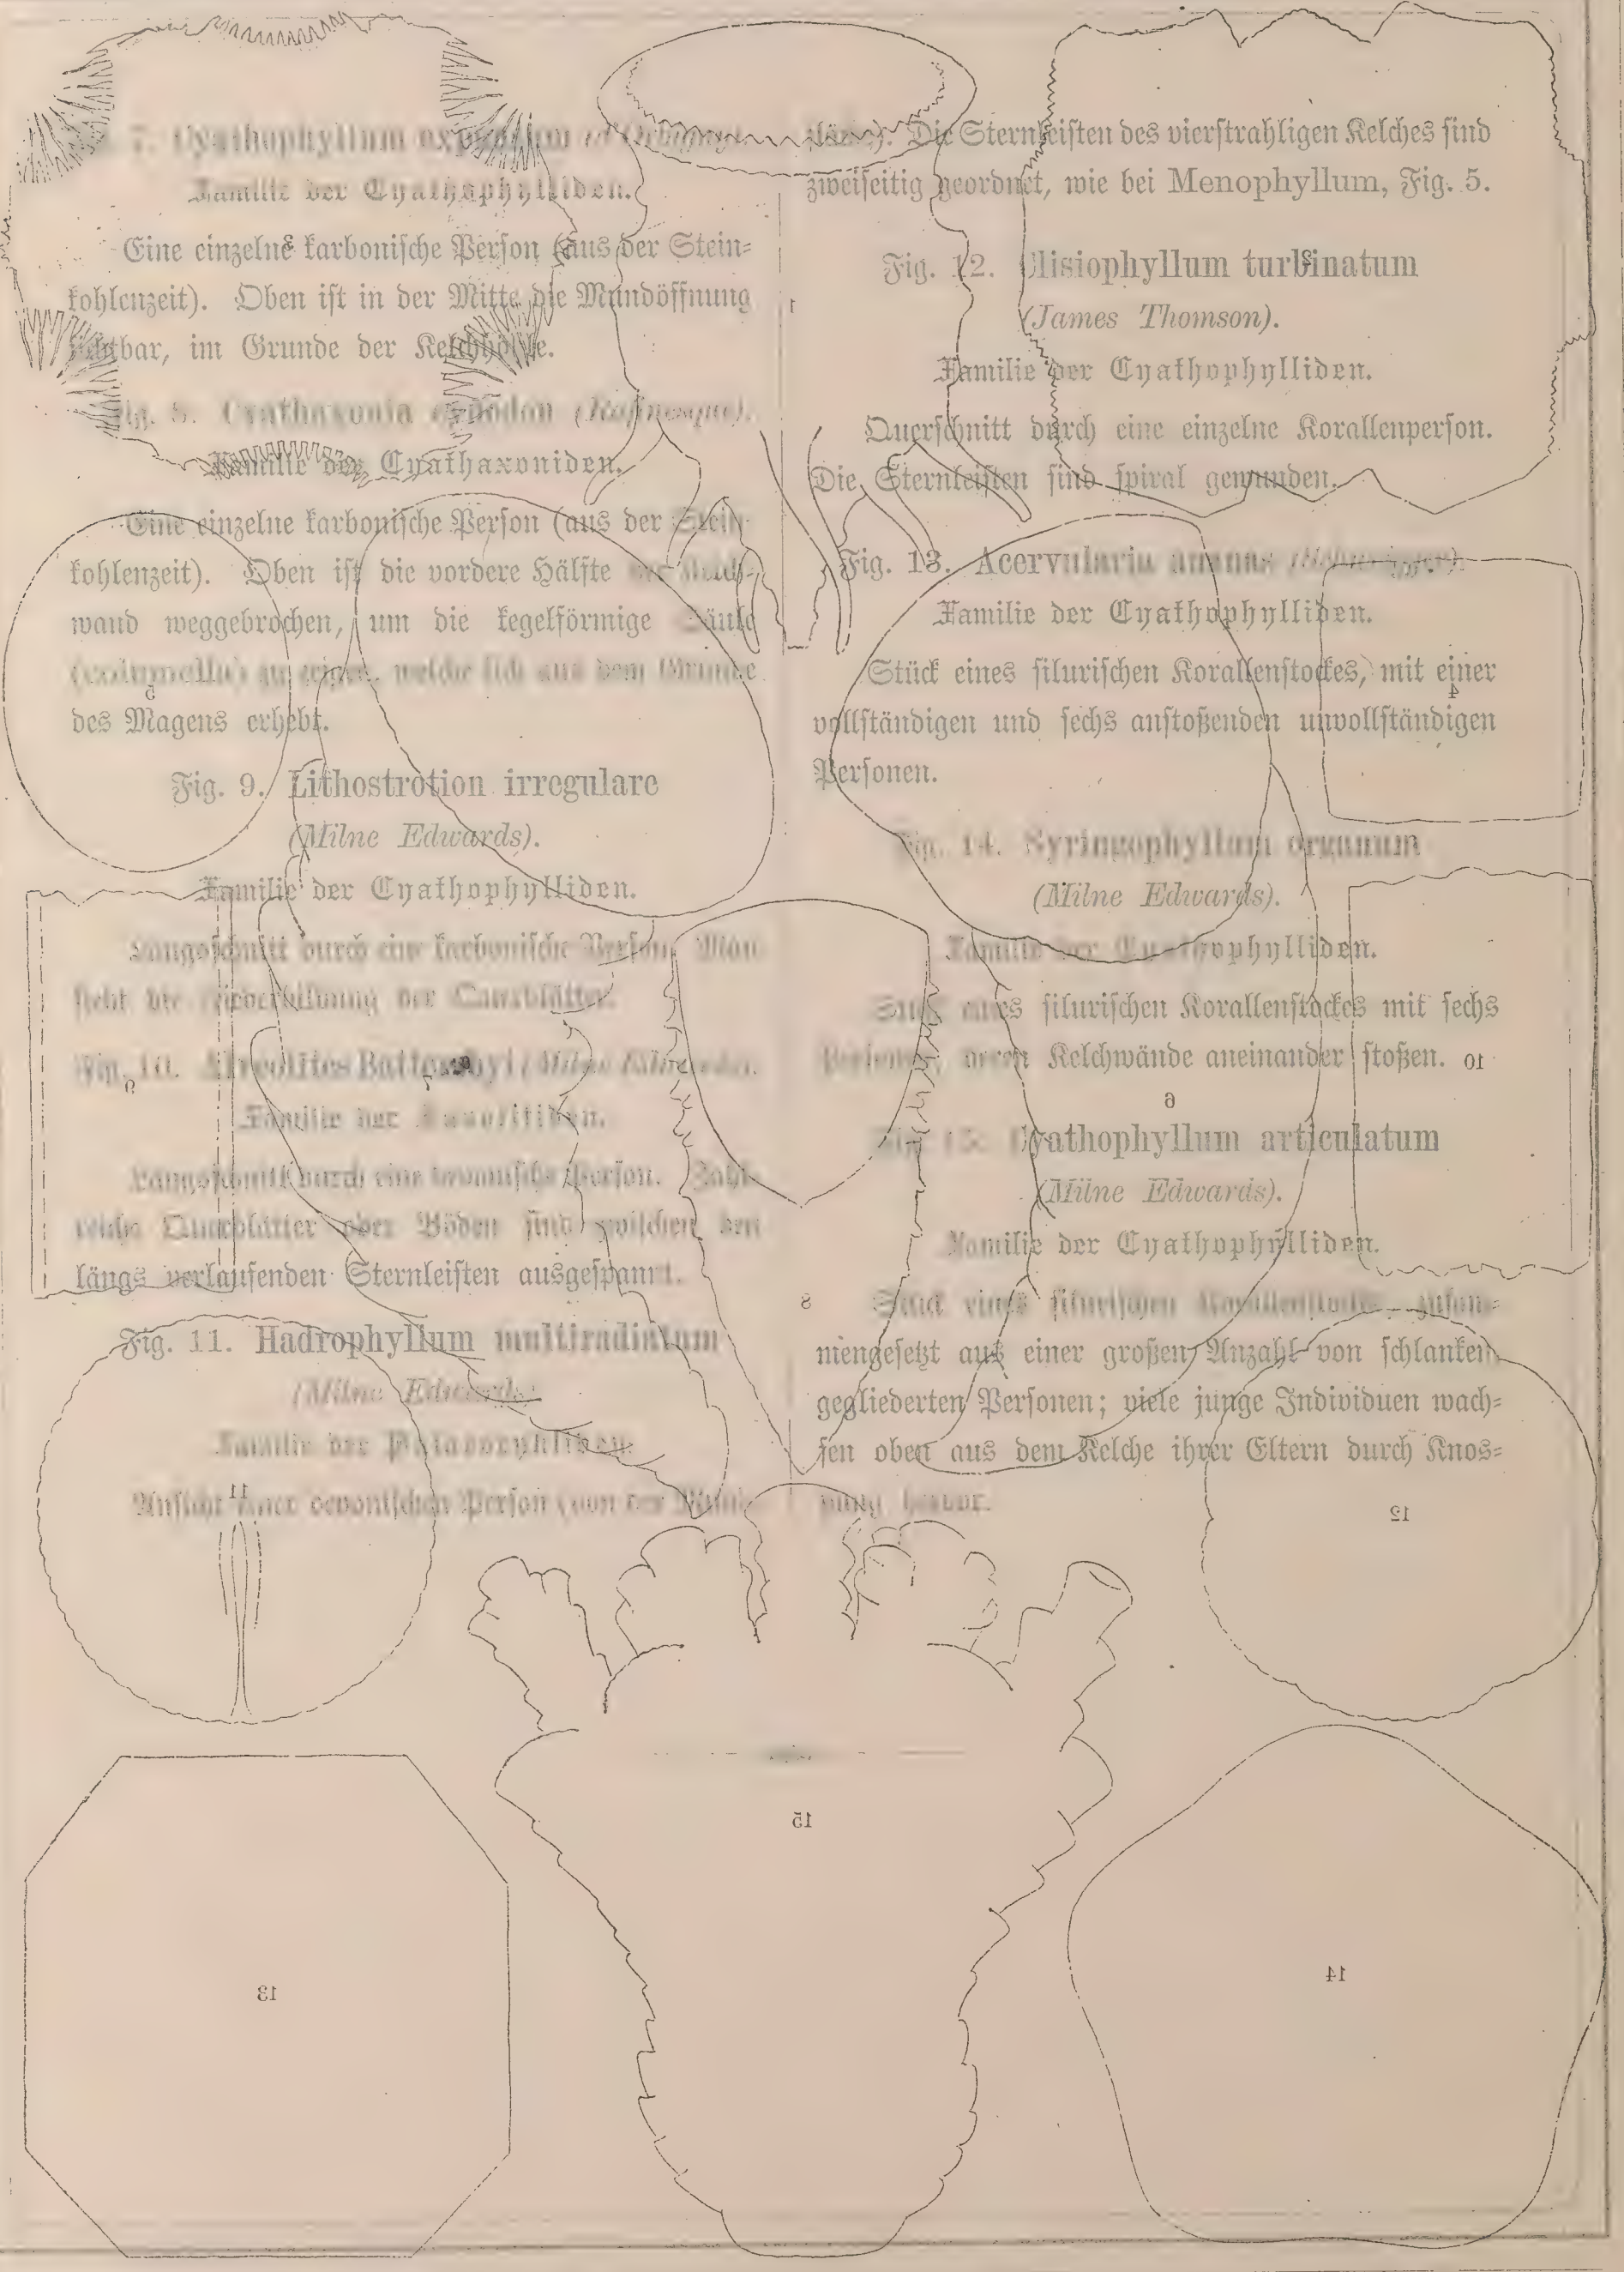 7. Cyathophyllum expansum (d'Orbigny).
Familie der Cyathophylliden.
Eine einzelne karbonische Person (aus der Stein-
kohlenzeit). Oben ist in der Mitte die Mundöffnung
sichtbar, im Grunde der Kelchhöhle.
Fig. 8. Cyathaxonia cynodon (Rafinesque).
Familie der Cyathaxoniden.
Eine einzelne karbonische Person (aus der Stein-
kohlenzeit). Oben ist die vordere Hälfte der Kelch-
wand weggebrochen, um die kegelförmige Säule
(columella) zu zeigen, welche sich aus dem Grunde
des Magens erhebt.
Fig. 9. Lithostrotion irregulare
(Milne Edwards).
Familie der Cyathophylliden.
Längsschnitt durch eine karbonische Person. Man
sieht die der Querblätter.
Fig. 10. Alveolites Battersbyi (Milne Edwards).
Familie der Favositiden.
Längsschnitt durch eine devonische Person. Zahl-
reiche Querblätter oder Böden sind zwischen den
längs verlaufenden Sternleisten ausgespannt.
Fig. 11. Hadrophyllum multiradiatum
(Milne Edwards).
Familie der
Ansicht einer devonischen Person (von der Mund-
fläche). Die Sternleisten des vierstrahligen Kelches sind
zweiseitig geordnet, wie bei Menophyllum, Fig. 5.
Fig. 12. Clisiophyllum turbinatum
(James Thomson).
Familie der Cyathophylliden.
Querschnitt durch eine einzelne Korallenperson.
Die Sternleisten sind spiral gewunden.
Fig. 13. Acervularia ananas (Schweigger).
Familie der Cyathophylliden.
Stück eines silurischen Korallenstockes, mit einer
vollständigen und sechs anstoßenden unvollständigen
Personen.
Fig. 14. Syringophyllum organum
(Milne Edwards).
Familie der Cyathophylliden.
Stück eines silurischen Korallenstockes mit sechs
Personen, deren Kelchwände aneinander stoßen.
Fig. 15. Cyathophyllum articulatum
(Milne Edwards).
Familie der Cyathophylliden.
Stück eines silurischen Korallenstockes, zusam-
mengesetzt aus einer großen Anzahl von schlanken
gegliederten Personen; viele junge Individuen wach-
sen oben aus dem Kelche ihrer Eltern durch Knos-
pung hervor.
3
2
1
5
4
10
6
7
9
8
11
12
15
13
14